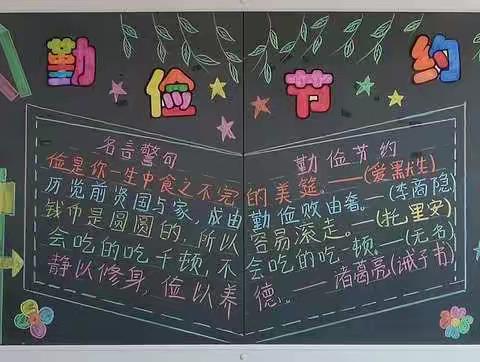 勤俭节约
名言警句 勤俭节约
俭是你一生中食之不完的美筵。——(爱默生)
历览前贤国与家，成由勤俭败由奢。——(李商隐)
钱币是圆圆的，所以容易滚走。——(托·里安)
会吃的吃千顿，不会吃的吃一顿。——(无名)
静以修身，俭以养德。——诸葛亮(诫子书)